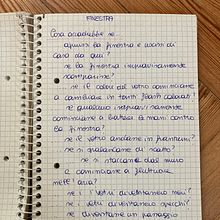 FINESTRA
Cosa accadrebbe se...
aprissi la finestra e uscissi di
casa da qui?
se la finestra improvvisamente
scomparisse?
se il colore del vetro cominciasse
a cambiare in tanti flash colorati?
se qualcuno improvvisamente
cominciasse a battere le mani contro
la finestra?
se il vetro andasse in frantumi?
se si spalancasse di scatto?
se si staccasse dal muro
e cominciasse a fluttuare
nell'aria?
se i vetri diventassero neri?
se i vetri diventassero specchi?
se diventasse un passaggio